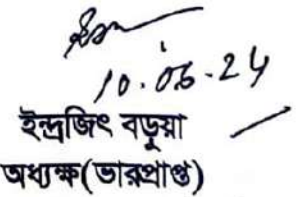 10.06.24
ইন্দ্রজিৎ বড়ুয়া
অধ্যক্ষ(ভারপ্রাপ্ত)